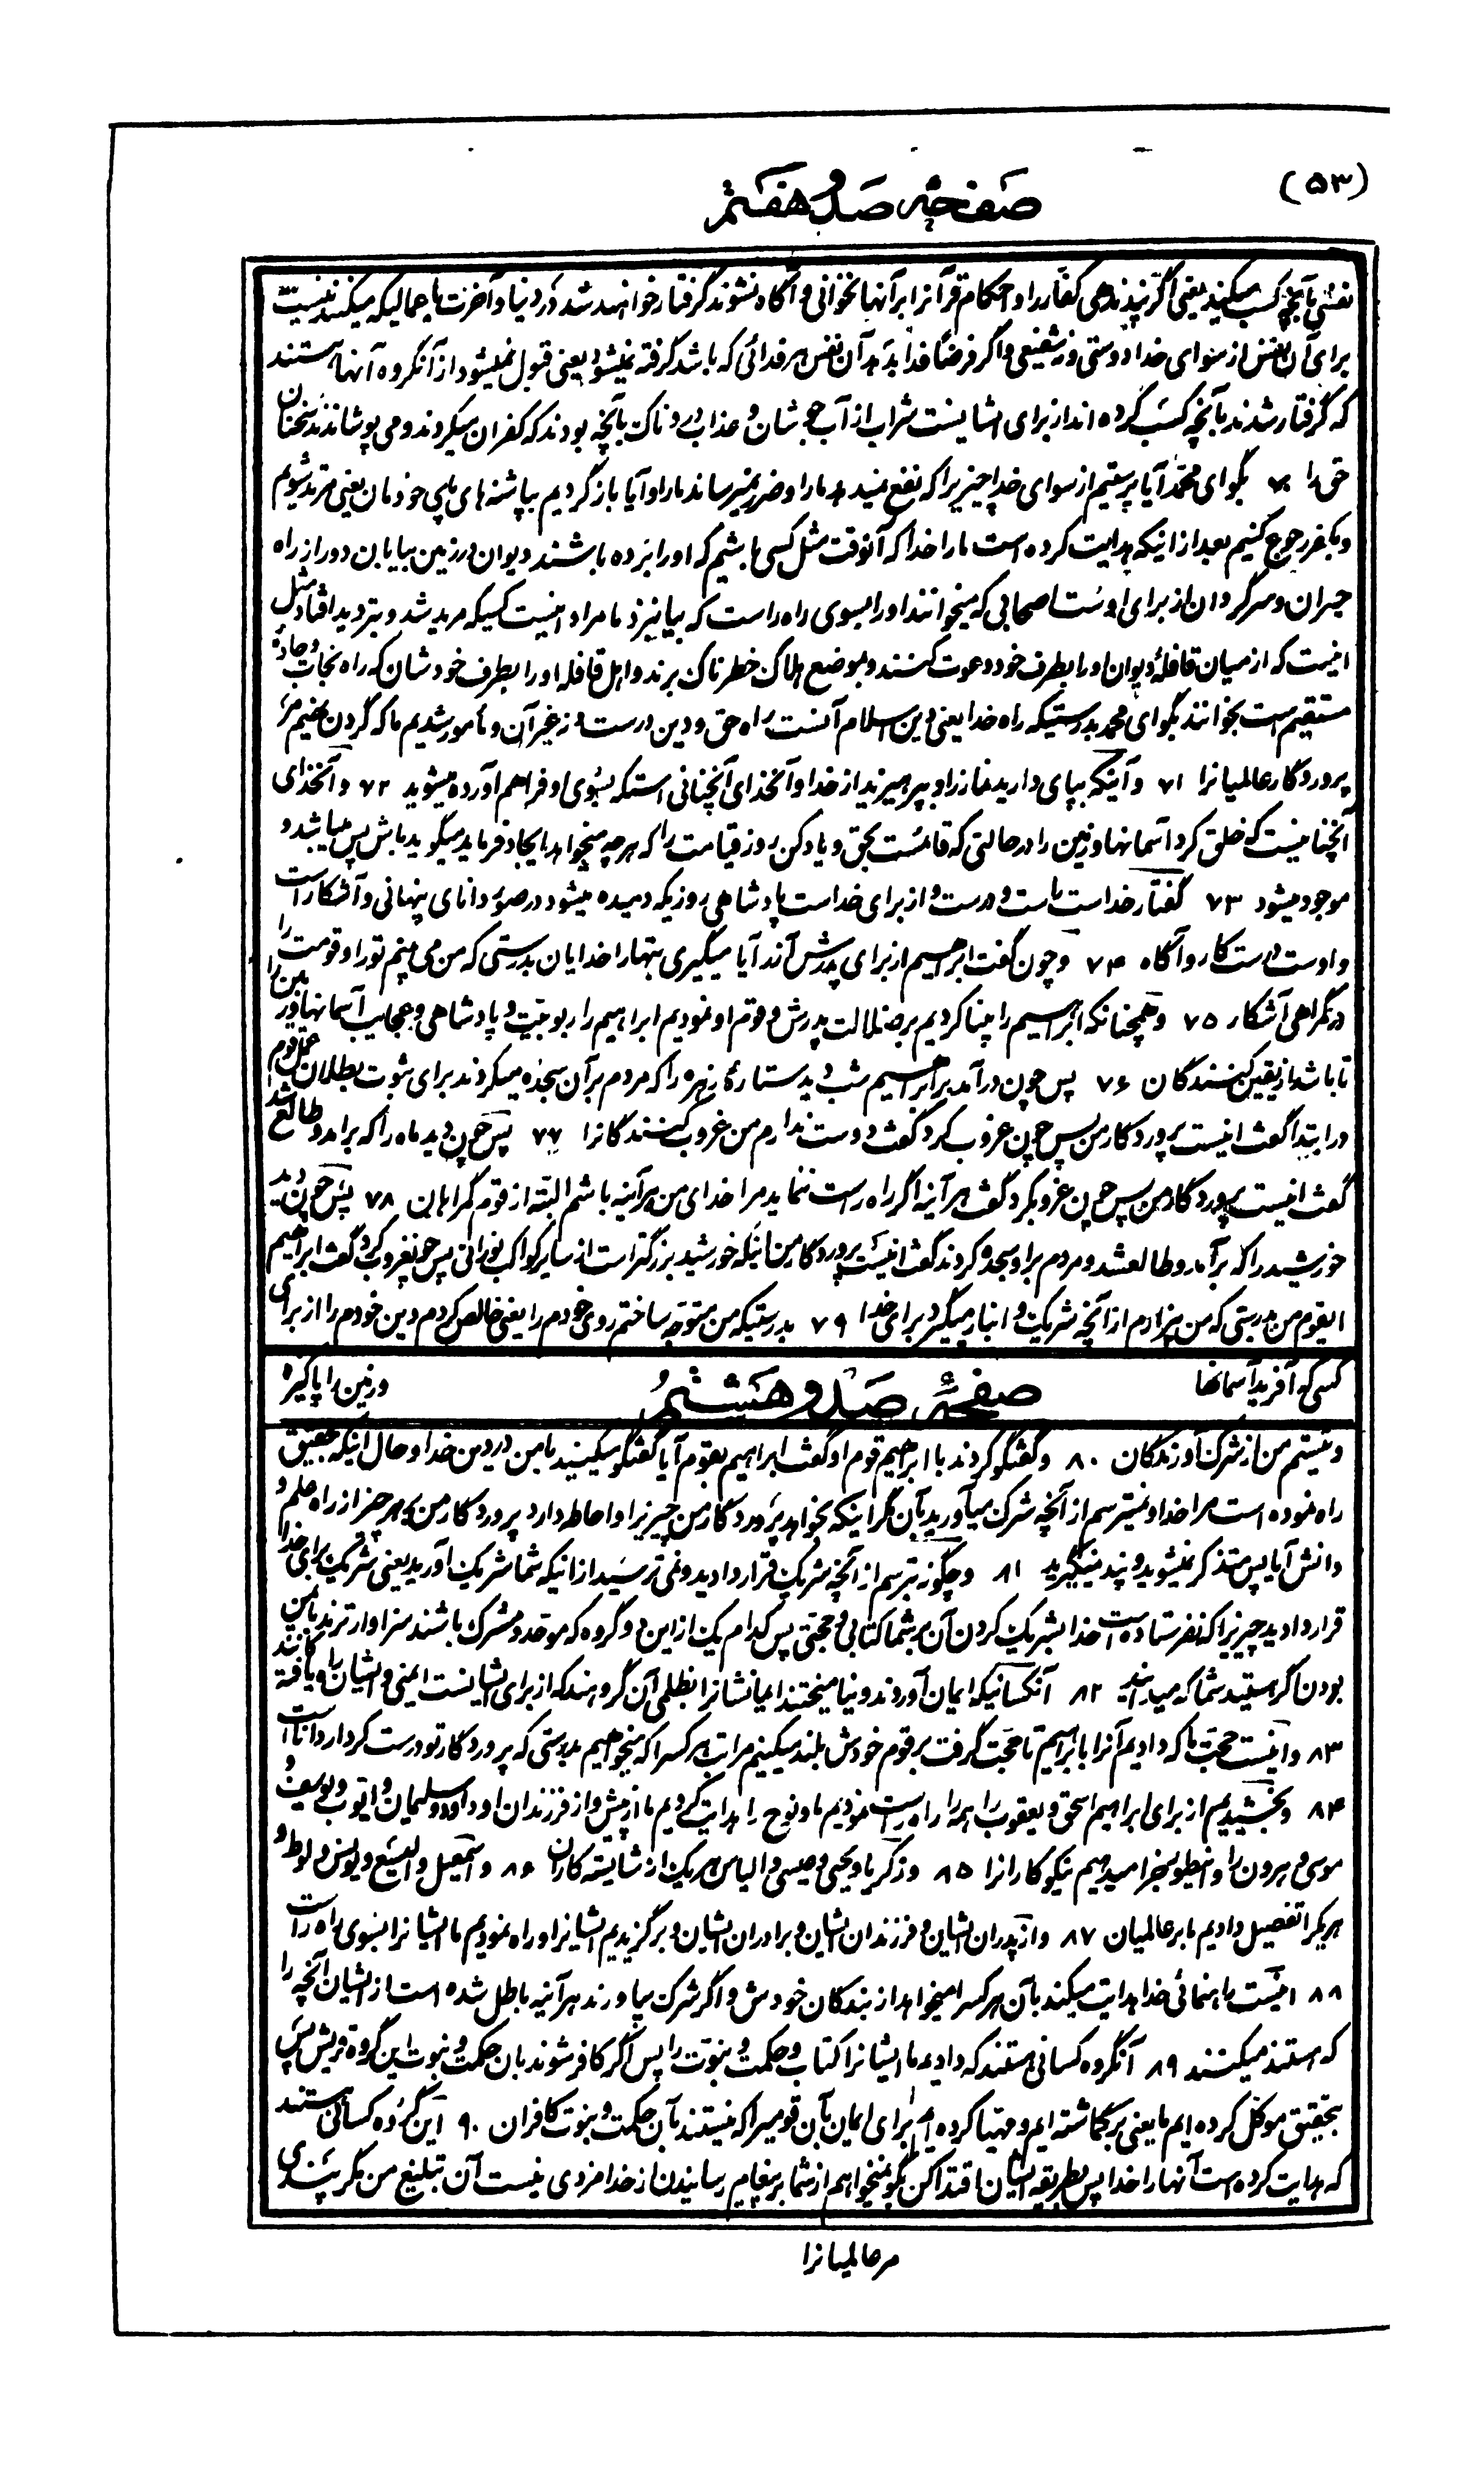 (۵۳)
صفحه صد و هفتم
نفسی بآنچه کسب میکنید یعنی اگر پند ندهی کفار را و احکام قرآنرا بر آنها نخوانی و آگاه نشوند گرفتار خواهند شد در دنیا و آخرت باعمالیکه میکنند نیست
برای آن نفس از سوای خدا دوستی و نه شفیعی و اگر فرضا فدا بدهد آن نفس هر فدائی که باشد گرفته نمیشود یعنی قبول نمیشود از آنگروه آنها هستند
که گرفتار شدند بآنچه کسب کرده اند از برای ایشانست شراب از آب جوشان و عذاب دردناک بآنچه بودند که کفران میکردند و می پوشاندند سخنان
حق را ۷۰ بگو ای محمد آیا پرستیم از سوای خدا چیزیرا که نفع نمیدهد ما را و ضرر نمیرساند ما را و آیا باز گردیم بپاشنه های پای خودمان یعنی مرتد شویم
و بکفر رجوع کنیم بعد از اینکه هدایت کرده است ما را خدا که آنوقت مثل کسی باشیم که او را برده باشند دیوان در زمین بیابان دور از راه
حیران و سرگردان از برای اوست اصحابی که میخوانند او را بسوی راه راست که بیا نزد ما مراد اینست کسیکه مرید شد و بتردید افتاد مثل
اینست که از میان قافله دیوان او را بطرف خود دعوت کنند و بموضع هلاک خطرناک برند و اهل قافله او را بطرف خودشان که راه نجات و جاده
مستقیم است بخوانند بگو ای محمد بدرستیکه راه خدا یعنی دین اسلام آنست راه حق و دین درست نه غیر آن و مأمور شدیم ما که گردن نهیم مر
پروردگار عالمیانرا ۷۱ و آنکه بپای دارید نماز را و بپرهیزید از خدا و آنخدای آنچنانی استکه بسوی او فراهم آورده میشوید ۷۲ و آنخدای
آنچنانیست که خلق کرد آسمانها و زمین را در حالتی که قائمست بحق و یاد کن روز قیامت را که هر چه میخواهد ایجاد فرماید میگوید باش پس میباشد و
موجود میشود ۷۳ گفتار خداست راست و درست و از برای خداست پادشاهی روزیکه دمیده میشود در صور دانای پنهانی و آشکار است
و اوست درست کار و آگاه ۷۴ و چون گفت ابراهیم از برای پدرش آزر آیا میگیری بتهارا خدایان بدرستی که من می بینم تو را و قومت را
در گمراهی آشکار ۷۵ و همچنانکه ابراهیم را بینا کردیم بر ضلالت پدرش و قوم او نمودیم ابراهیم را ربوبیت و پادشاهی و عجایب آسمانها و زمین را
تا باشد از یقین کنندگان ۷۶ پس چون در آمد بر ابراهیم شب دید ستاره زهره را که مردم بر آن سجده میکردند برای ثبوت بطلان عمل قوم
در ابتدا گفت اینست پروردگار من پس چون غروب کرد گفت دوست ندارم من غروب کنندگانرا ۷۷ پس چون دید ماه را که برآمد و طالع شد
گفت اینست پروردگار من پس چون غروبکرد گفت هر آینه اگر راه راست ننماید مرا خدای من هرآینه باشم البته از قوم گمراهان ۷۸ پس چون دید
خورشید را که برآمد و طالعشد و مردم بر او سجده کردند گفت اینست پروردگار من اینکه خورشید بزرگتر است از سایر کواکب نورانی پس چونغروب کرد گفت ابراهیم
ایقوم من بدرستی که من بیزارم از آنچه شریک و انباز میگیرد برای خدا ۷۹ بدرستیکه من متوجه ساختم روی خودم را یعنی خالص کردم دین خودم را از برای
کسی که آفرید آسمانها
صفحه صد و هشتم
و زمین را پاکیزه
و نیستم من از شرک آورندگان ۸۰ و گفتگو کردند با ابراهیم قوم او گفت ابراهیم بقوم آیا گفتگو میکنید با من در دین خدا و حال اینکه بتحقیق
راه نموده است مرا خدا و نمیترسم از آنچه شرک میآورید بآن مگر اینکه بخواهد پروردگار من چیزیرا و احاطه دارد پروردگار من بهر چیز از راه علم و
دانش آیا پس متذکر نمیشوید و پند نمیگیرید ۸۱ و چگونه بترسم از آنچه شریک قرار دادید و نمی ترسید از اینکه شما شریک آورید یعنی شریک برای خدا
قرار دادید چیزیرا که نفرستاده است خدا بشریک کردن آن بر شما کتابی و حجتی پس کدام یک از این دو گروه که موحد و مشرک باشند سزاوارترند بامن
بودن اگر هستید شما که میدانید ۸۲ آنکسانیکه ایمان آوردند و نیامیختند ایمانشانرا بظلمی آن گروهند که از برای ایشانست ایمنی و ایشان راه یافته گانند
۸۳ و اینست حجت ما که دادیم آنرا بابراهیم تا حجت گرفت بر قوم خودش بلند میکنیم مراتب هر کسرا که میخواهیم بدرستی که پروردگار تو درست کردار دانا است
۸۴ و بخشیدیم از برای ابراهیم اسحق و یعقوب را همه را راه راست نمودیم ما و نوح را هدایت کردیم ما از پیش و از فرزندان او داود و سلیمان و ایوب و یوسف و
موسی و هرون را و اینطور جزا میدهیم نیکوکارانرا ۸۵ و زکریا و یحیی و عیسی و الیاس هر یک از شایسته کاران ۸۶ و اسمعیل و الیسع و یونس و لوط و
هریکرا تفضیل دادیم ما بر عالمیان ۸۷ و از پدران ایشان و فرزندان ایشان و برادران ایشان و برگزیدیم ایشانرا و راه نمودیم ما ایشانرا بسوی راه راست
۸۸ اینست راهنمائی خدا هدایت میکند بآن هر کسرا میخواهد از بندگان خودش و اگر شرک بیاورند هرآینه باطل شده است از ایشان آنچه را
که هستند میکنند ۸۹ آنگروه کسانی هستند که دادیم ما ایشانرا کتاب و حکمت و نبوت را پس اگر کافر شوند بان حکمت و نبوت این گروه قریش پس
بتحقیق موکل کرده ایم ما یعنی برگماشته ایم و مهیا کرده ایم برای ایمان بآن قومیرا که نیستند بآن حکمت و نبوت کافران ۹۰ این گروه کسانی هستند
که هدایت کرده است آنها را خدا پس بطریقه ایشان اقتدا کن بگو نمیخواهم از شما بر پیغام رسانیدن از خدا مزدی نیست آن تبلیغ من مگر پندی
مر عالمیانرا